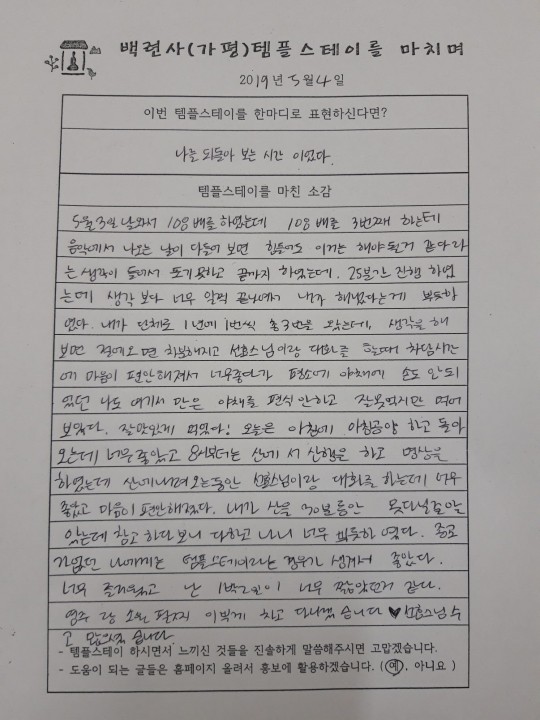 백련사(가평)템플스테이를 마치며
2019년 5월 4일
이번 템플스테이를 한마디로 표현하신다면?
나를 되돌아 보는 시간 이였다.
템플스테이를 마친 소감
5월 3일 날와서 108배를 하였는데 108배를 3번째 하는데
음악에서 나오는 말이 다들어 보면 힘들어도 이거는 해야될거 같다라
는 생각이 들어서 포기못하고 끝까지 하였는데. 25분가 진행 하였
는데 생각 보다 너무 일찍 끝나에서 내가 해냈다는게 뿌듯하
였다. 내가 단체로 1년에 1번씩 총 3번을 왔는데, 생각을 해
보면 절에오면 차분해지고 선효스님이랑 대화를 할때 차담시간
에 마음이 편안해져서 너무좋다가 평소에 야채에 손도 안되
있던 나도 여기서 만은 야채를 편식 안하고 잘못먹지만 먹어
보았다. 잘맛있게 먹었다! 오늘은 아침에 아침공양 하고 돌아
오는데 너무좋았고 8시부터는 산에 서 산행을 하고 명상을
하였는데 산에내려오는동안 선효스님이랑 대화를 하는데 너무
좋았고 마음이 편안해졌다. 내가 산을 30분동안 못다닐줄알
았는데 참고 하다보니 다하고 나니 너무 뿌듯하 였다. 종교
가없던 나에게는 템플스테이라는 경우가 생겨서 좋았다.
너무 즐거웠고 난 1박2일이 너무 짧았던거 같다.
염주 랑 소원 팔찌 이쁘게 차고 다니겠 습니다 ♥ 선효스님 수
고 많으셨 습니다.
- 템플스테이 하시면서 느끼신 것들을 진솔하게 말씀해주시면 고맙겠습니다.
- 도움이 되는 글들은 홈페이지 올려서 홍보에 활용하겠습니다. (예, 아니요 )